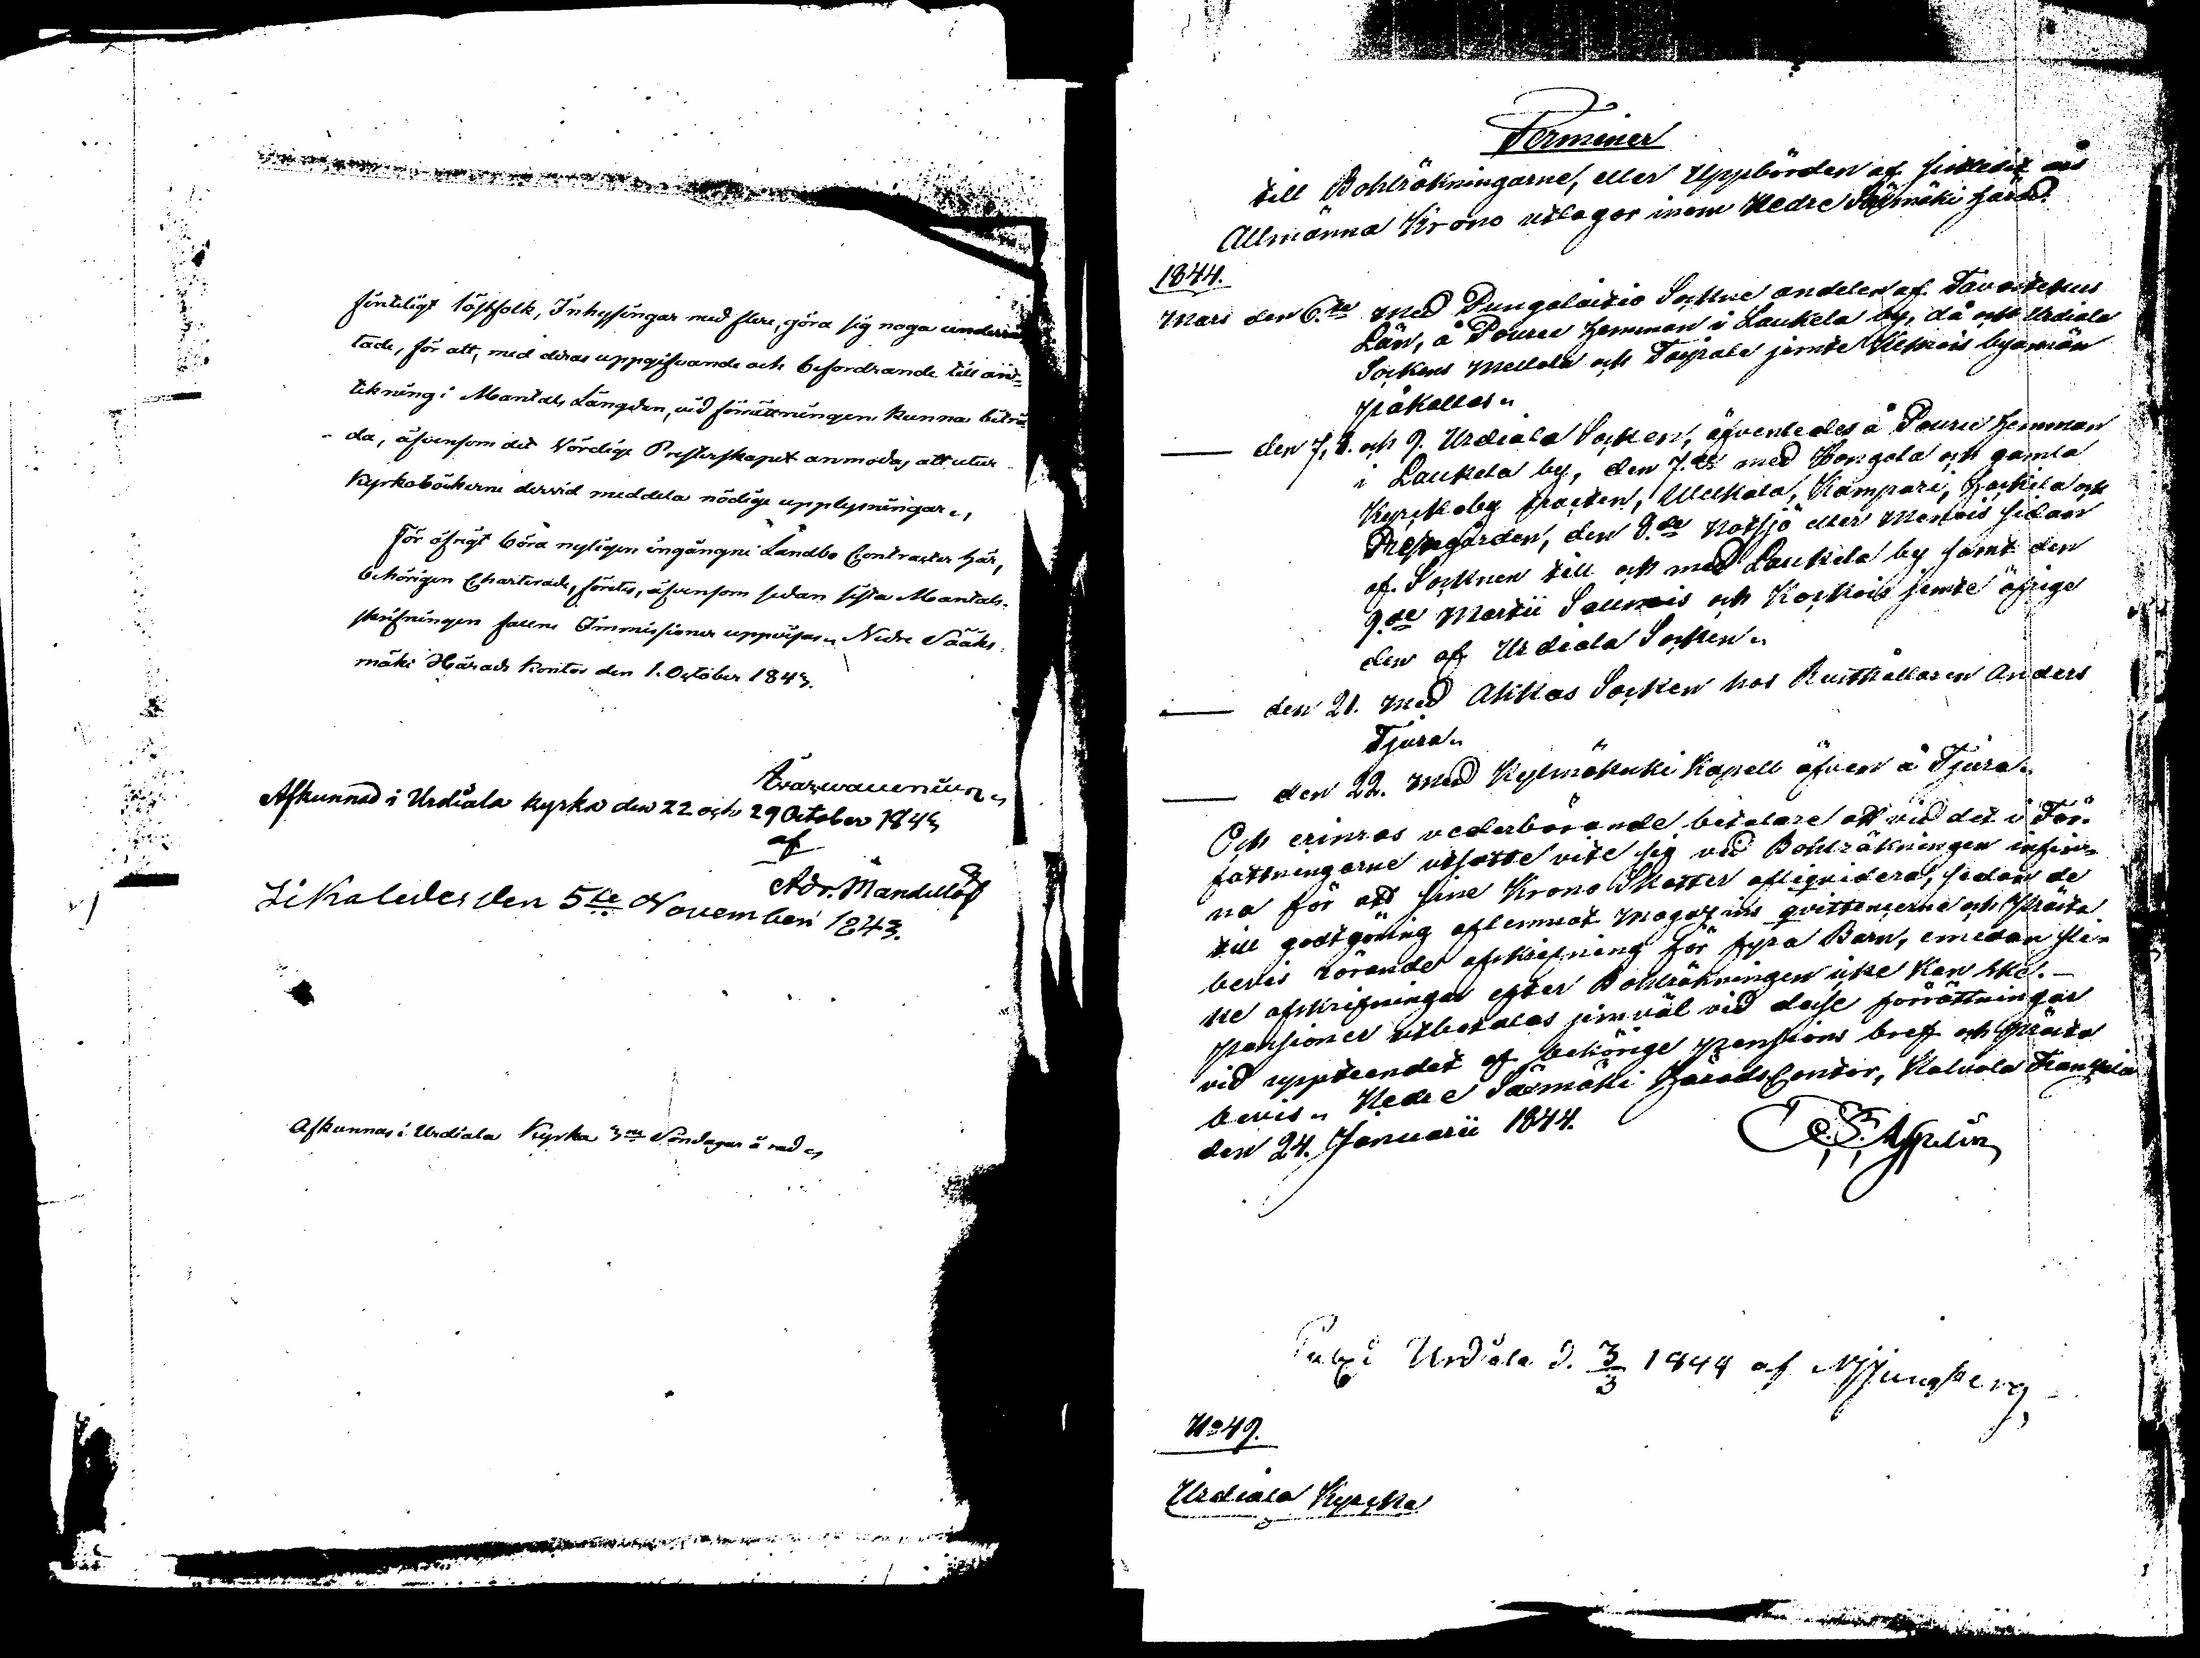 fintligt löst folk, Inhysingar med flere, göra sig noga underrät
tade, för att, med deras uppgifvande och befordrande till an¬
tekning i Mantals Längden, vid förrättningen kunna biträ
da, äfvensom det Vördige Presterskapet anmodas att utur
Kyrkoböckerne dervid meddela nödige upplysningar.
För öfrigt böra nyligen ingångne Landbo Contracter här,
behörigen Charterade, företes, äfvensom sedan sista Mantals-
skrifningen fallne Immissioner uppvisas. Nedre Sääks-
mäki Härads Kontor den 1. October 1843.
Afkunnad i Urdiala kyrka den 22 och 29 October 1843
af
Adr. Mandellöf
Likaledes den 5te November 1843.
Afkunnas i Urdiala Kyrka 3ne Söndagar å rad
Terminer
till Bohlräkningarne, eller Uppbörden af
Allmänna Krono utlagor inom Nedre Säxmäki Härad.
1844.
Mars den 6.te med Pungalaitio Sockne andelen af Tavastehus
Län, å Pouru hemman i Laukela by, då och Urdiala
Sockens Mellola och Taipale jemte byamän
påkallas.
den 7, 8. och 9. Urdiala Socken, äfvenledes å Pouru hemman
i Laukela by, den 7.de med Hongola och gamla
Kyrckoby tracten, Ullkala, Kampari, och
Prestgården, den 8.de Notsjö eller Menois sidan
af Socknen till och med Laukela by samt den
9.de Martii Saunois och Kockois jemte öfrige
den af Urdiala Socken.
den 21. med Akkas Socken hos Rusthållaren Anders
Tjura.
den 22. med Kylmäkoski Kapell äfven å Tjura.
Och erinras vederbörande betalare att vid det i För-
fattningarne utsatte vite sig vid Bohlräkningen infin¬
na för att sine Krono Skatter afliqvidera, sedan de
till godtgöring aflemnat Magazins qvittencerne och Präste
bevis rörande afskrifning för fyra Barn, emedan sle-
ne afskrifningar efter Bohlräkningen icke kan ske.—
Pensioner utbetalas jemväl vid desse förrättningar
vid uppteendet af behörige pensions bref och Präste
bevis. Nedre Säxmäki Härads Contor, Kalvola Frantsila
den 24. Januarii 1844.
Publ. i Urdiala d. 3/3 1844 af NJungberg
No 49.
Urdiala Kyrcka